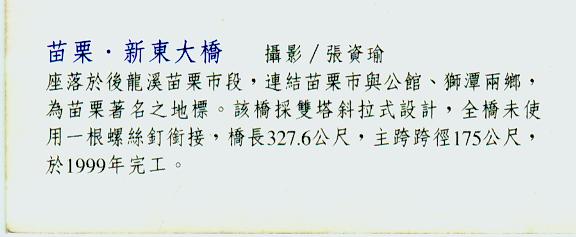 苗栗・新東大橋　攝影／張資瑜
座落於後龍溪苗栗市段，連結苗栗市與公館、獅潭兩鄉，
為苗栗著名之地標。該橋採雙塔斜拉式設計，全橋未使
用一根螺絲釘銜接，橋長327.6公尺，主跨跨徑175公尺，
於1999年完工。